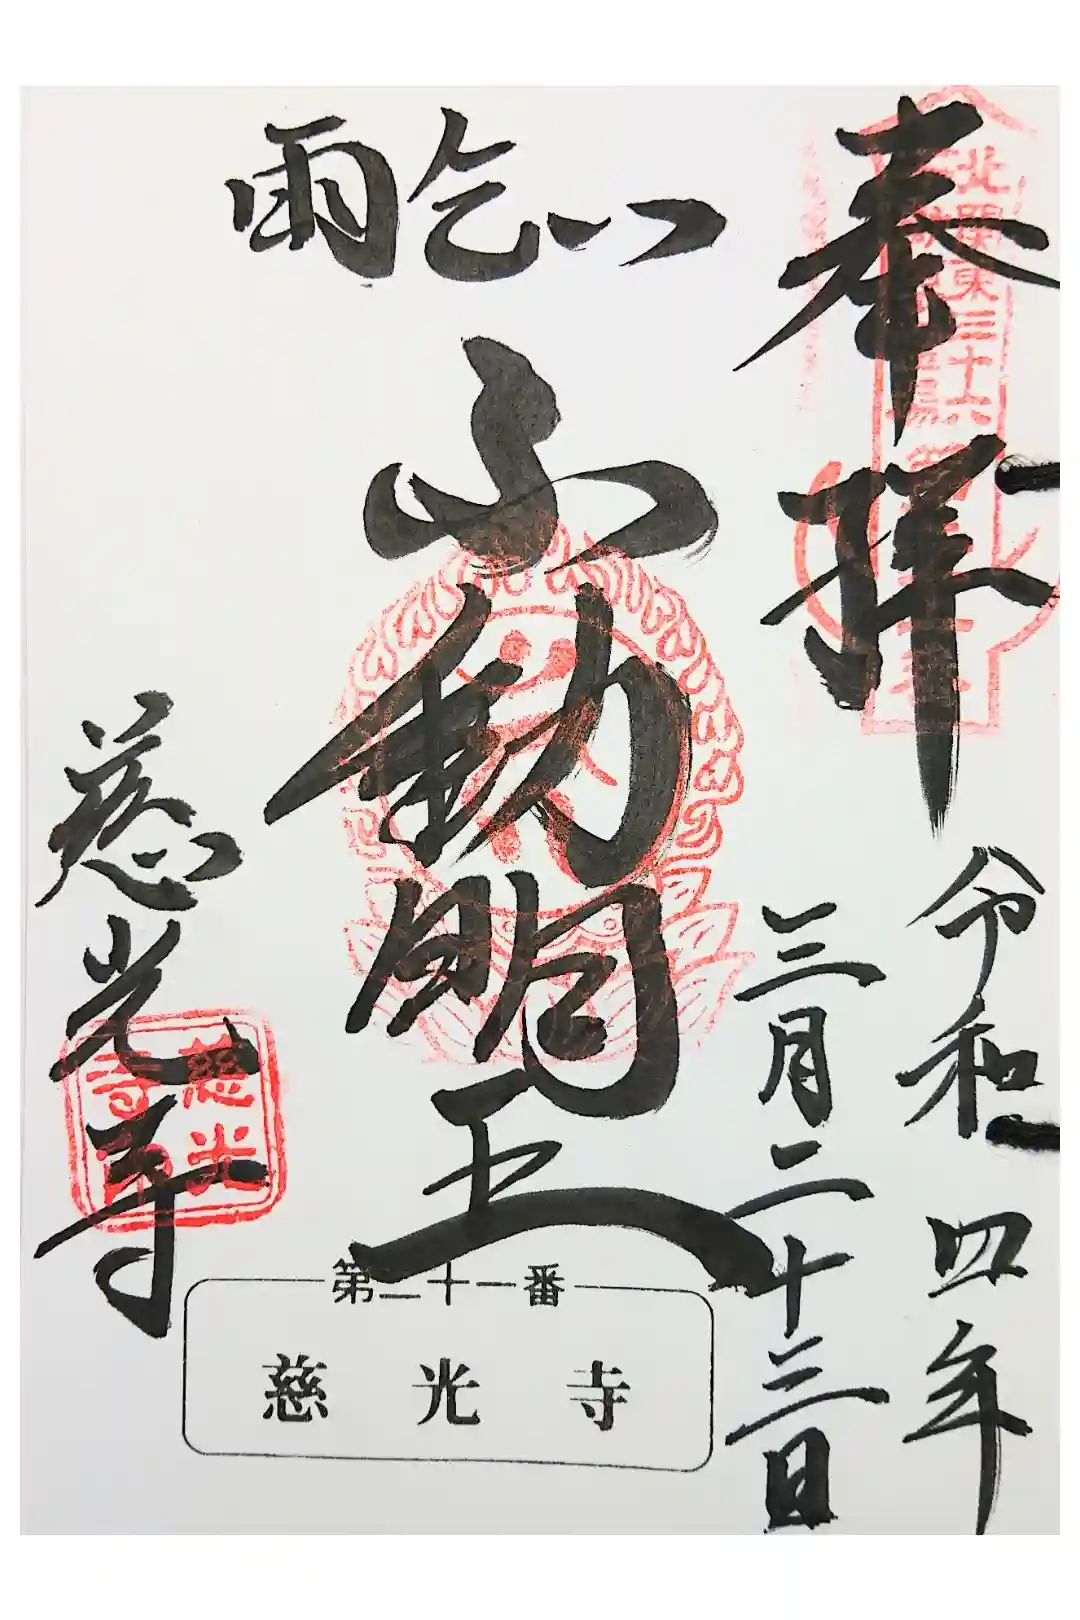 奉拝
令和四年
三月二十三日
雨乞い
不動明王
慈光寺
北関東三十六
慈光
寺印
第二十一番
慈光寺